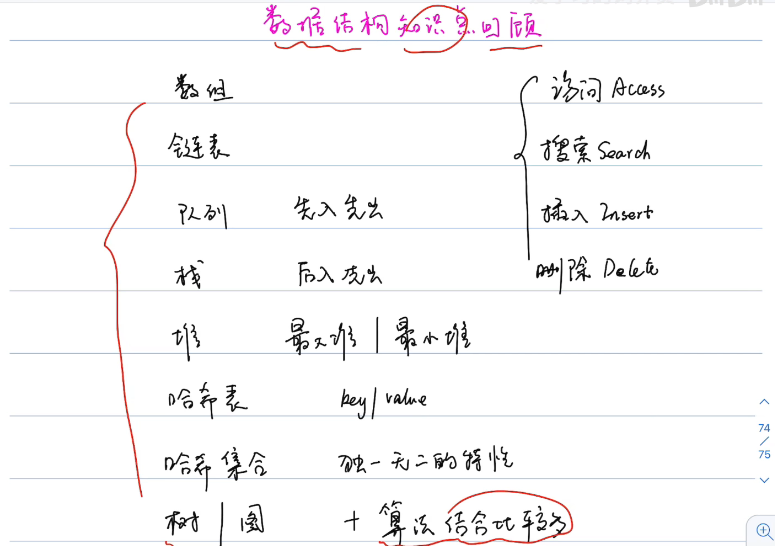 数据结构知识点回顾
数组
链表
队列 先入先出
栈 后入先出
堆 最大堆 | 最小堆
哈希表 key/value
哈希集合 独一无二的特性
树 | 图 + 算法结合比较多
访问 Access
搜索 Search
插入 Insert
删除 Delete
74
/
75